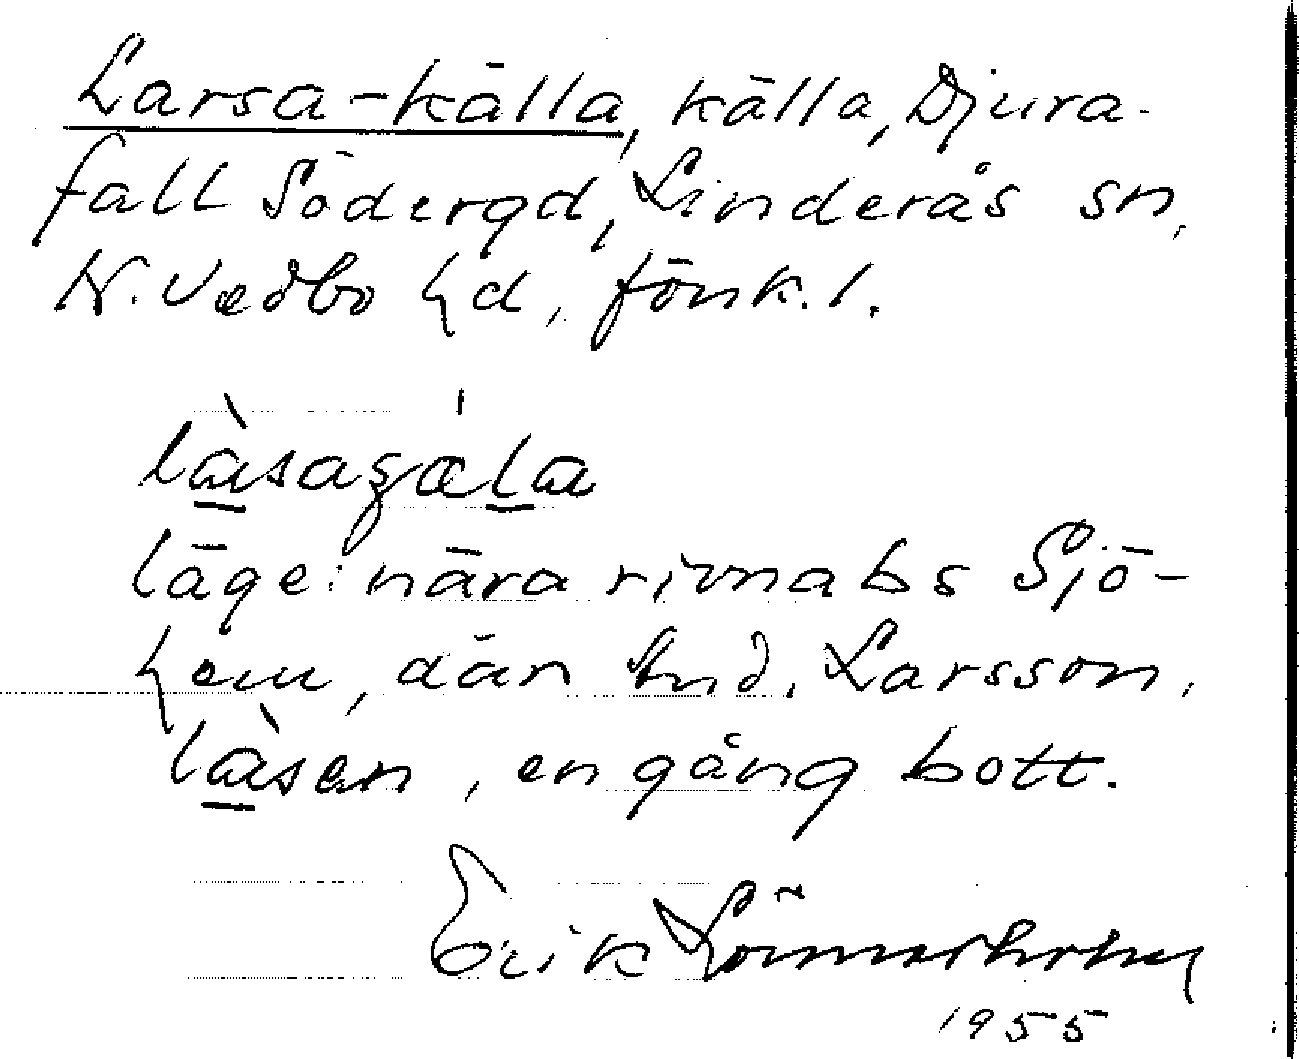 Larsa-källa, källa, Djura-
fall Södergd, Linderås sn,
N. Vedbo hd, Jönk. l.
làsagæla
läge: nära rivna bs Sjö-
hem, där And. Larsson,
làsen, en gång bott.
Erik Lönnerholm
1955